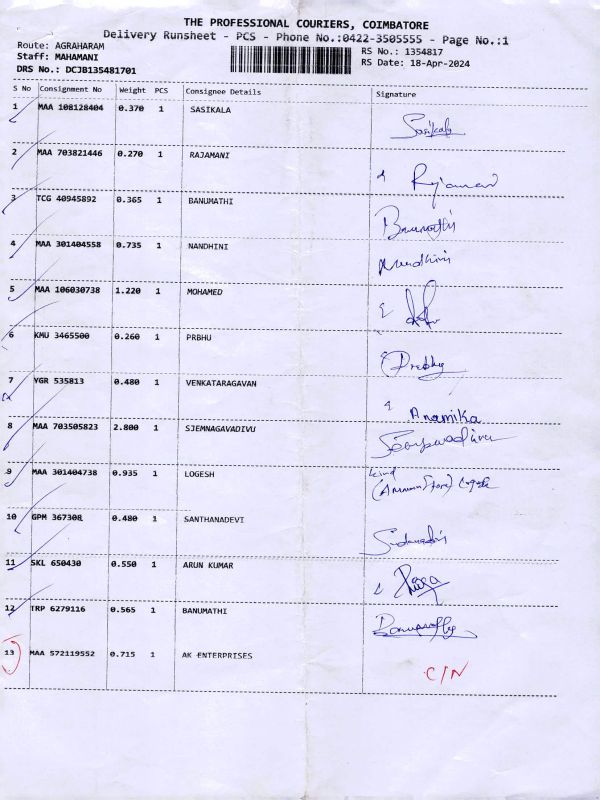 THE PROFESSIONAL COURIERS, COIMBATORE
Delivery Runsheet - PCS - Phone No.:0422-3505555 - Page No.:1
Route: AGRAHARAM
RS No.: 1354817
Staff: MAHAMANI
RS Date: 18-Apr-2024
DRS No.: DCJB135481701
S No Consignment No Weight PCS Consignee Details Signature
1 MAA 108128404 0.370 1 SASIKALA Sasikala
2 MAA 703821446 0.270 1 RAJAMANI
3 TCG 40945892 0.365 1 BANUMATHI Banumathi
4 MAA 301404558 0.735 1 NANDHINI Nandhini
5 MAA 106030738 1.220 1 MOHAMED
6 KMU 3465500 0.260 1 PRBHU Prabhu
7 YGR 535813 0.480 1 VENKATARAGAVAN Anamika
8 MAA 703505823 2.800 1 SJEMNAGAVADIVU
9 MAA 301404738 0.935 1 LOGESH
10 GPM 367308 0.480 1 SANTHANADEVI
11 SKL 650430 0.550 1 ARUN KUMAR
12 TRP 6279116 0.565 1 BANUMATHI
13 MAA 572119552 0.715 1 AK ENTERPRISES C/N